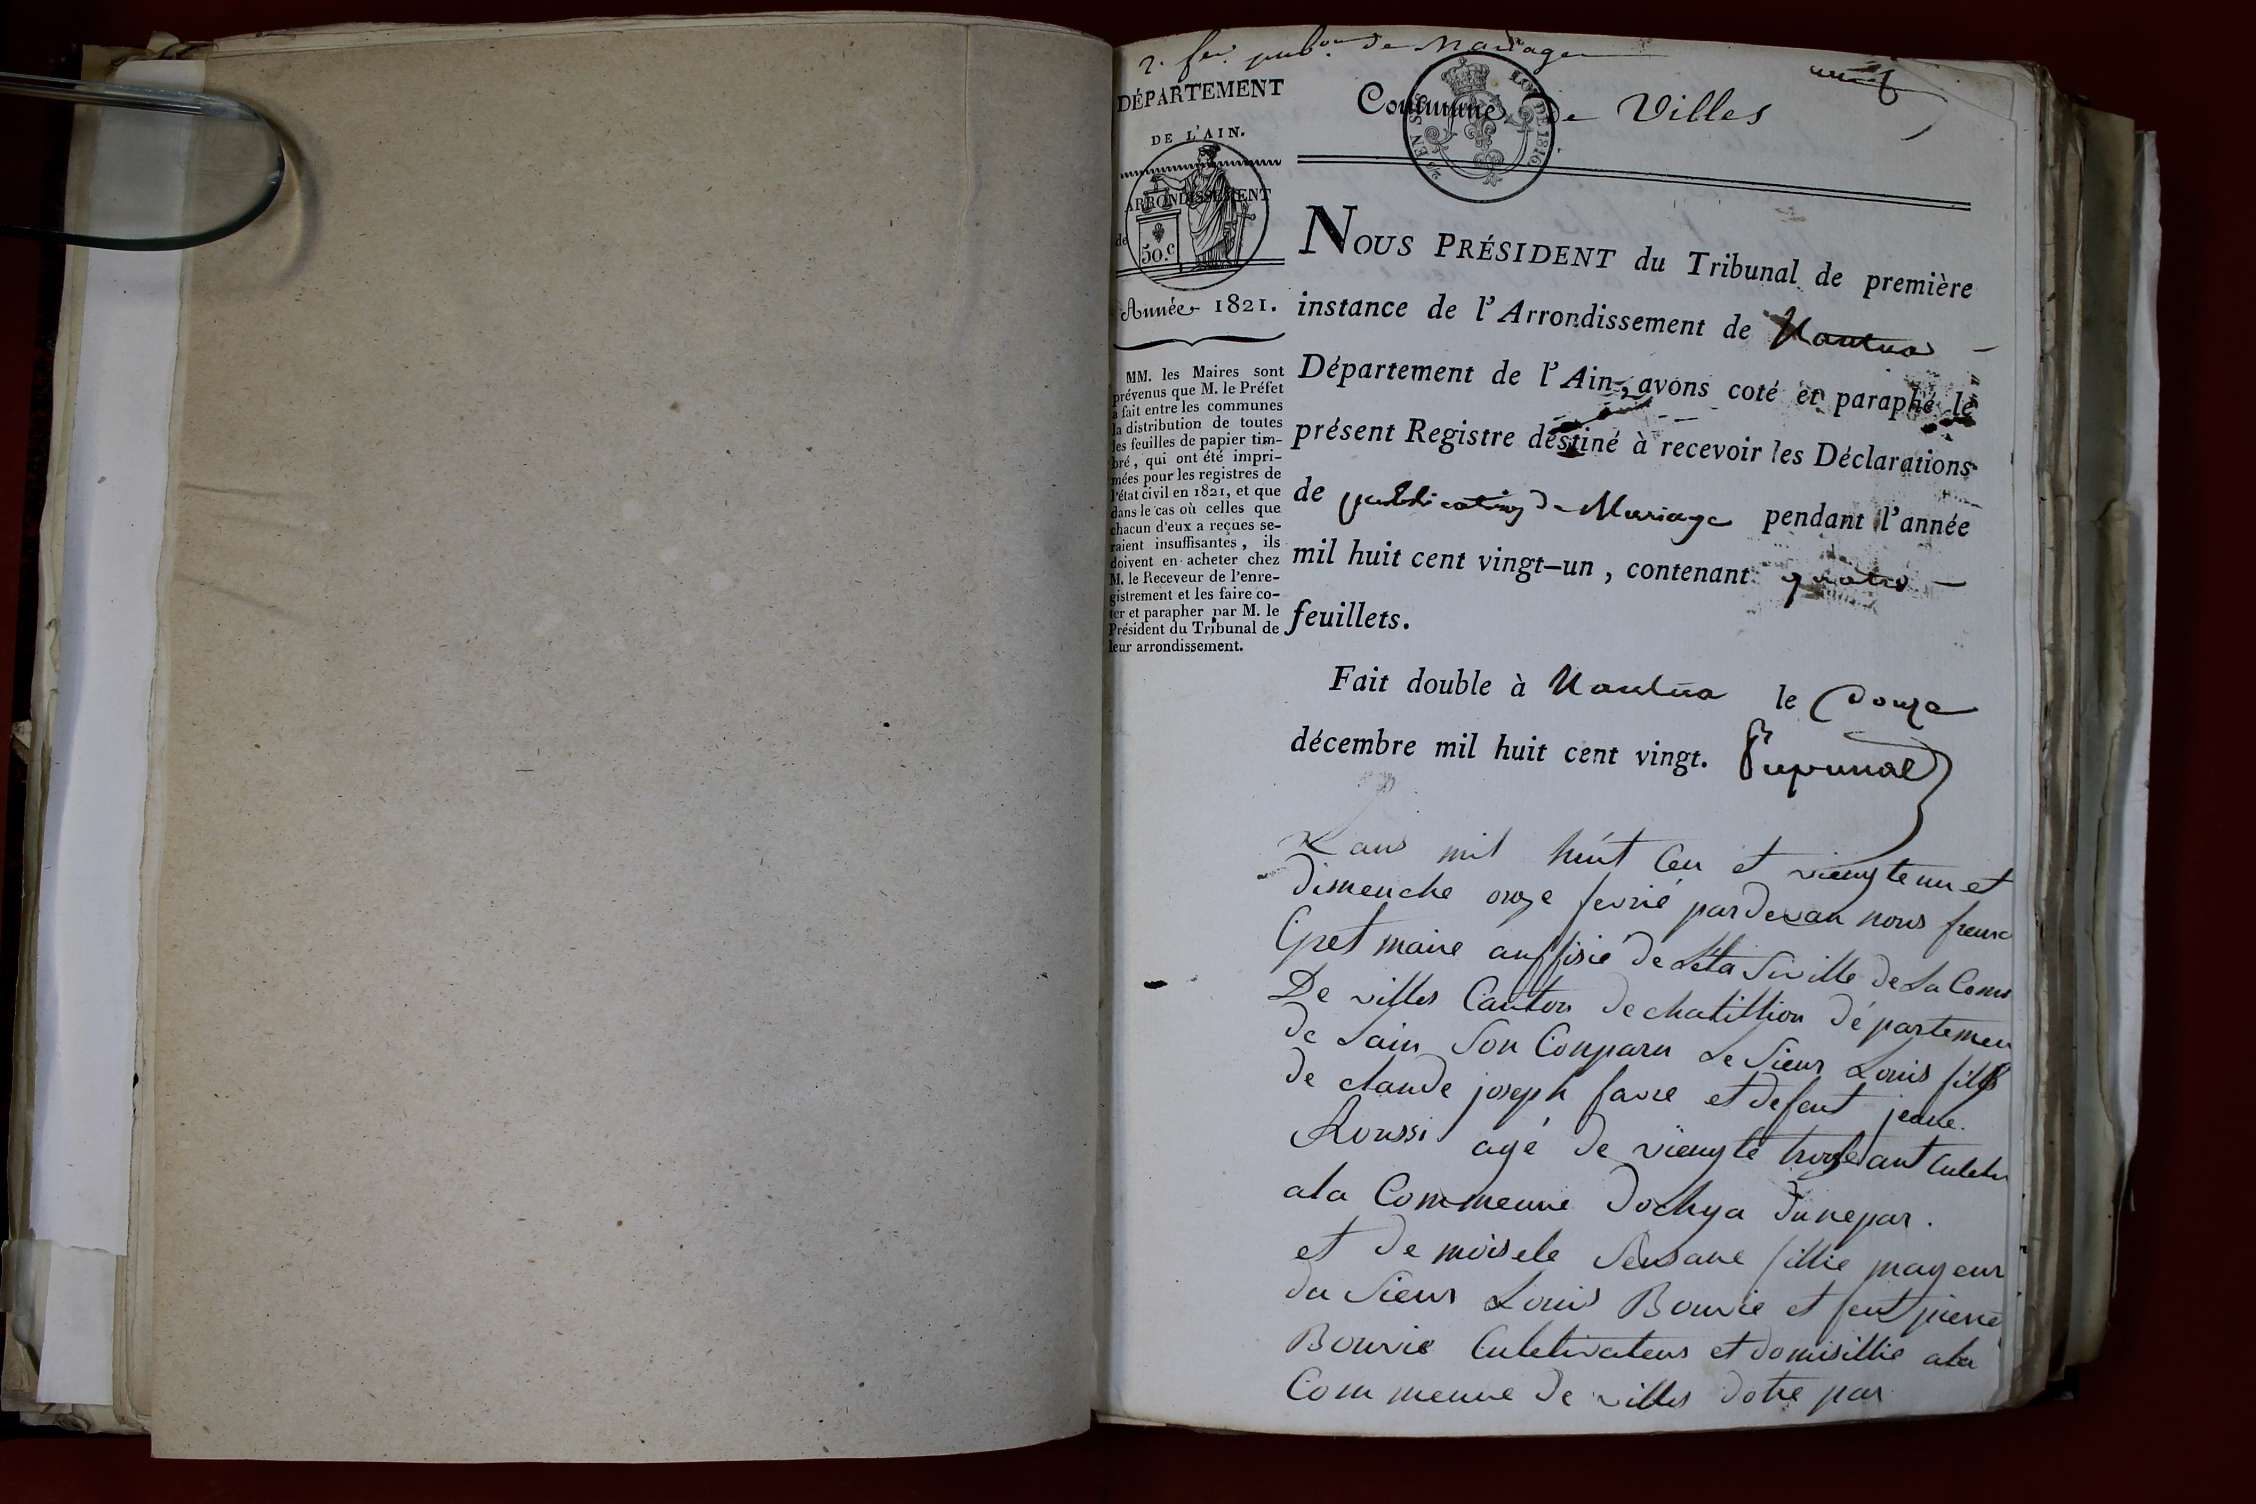 2. feu. pubon de Mariage
DÉPARTEMENT
DE L'AIN.
ARRONDISSEMENT
de
50.c
Année 1821.
MM. les Maires sont
prévenus que M. le Préfet
a fait entre les communes
la distribution de toutes
les feuilles de papier tim-
bré, qui ont été impri-
mées pour les registres de
l'état civil en 1821, et que
dans le cas où celles que
chacun d'eux a reçues se-
raient insuffisantes, ils
doivent en acheter chez
M. le Receveur de l'enre-
gistrement et les faire co-
ter et parapher par M. le
Président du Tribunal de
leur arrondissement.
Commune De Villes
LOI DE 1816
EN SUS
NOUS PRÉSIDENT du Tribunal de première
instance de l'Arrondissement de Nantua
Département de l'Ain, avons coté et paraphé le
présent Registre destiné à recevoir les Déclarations
de publications de Mariage pendant l'année
mil huit cent vingt-un, contenant quatre
feuillets.
Fait double à Nantua le Douze
décembre mil huit cent vingt.
Lans mil huit Cen et viengteun et
dimenche onze fevrié pardevan nous
maire auffisié de Léta Siville de La Comu
De villes Canton de chatillion départemen
de Lain Son Conparu Le Sieur Louis fills
de claude joseph favre et defeut jeane
Roussi agé de viengte troize ant Culetu
ala Commeune dochya dunepar.
et de moisele Seusane fillie mayeur
du Sieur Louis Bouvie et feut pierre
Bouvie Culetivateur et domisillie ala
Commeune de villes dotre par